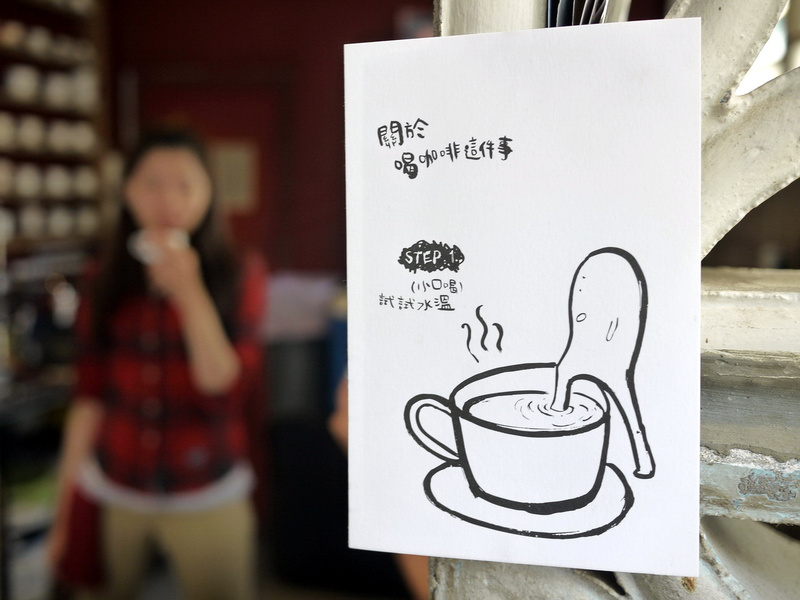 關於
喝咖啡這件事
STEP 1.
(小口喝)
試試水溫